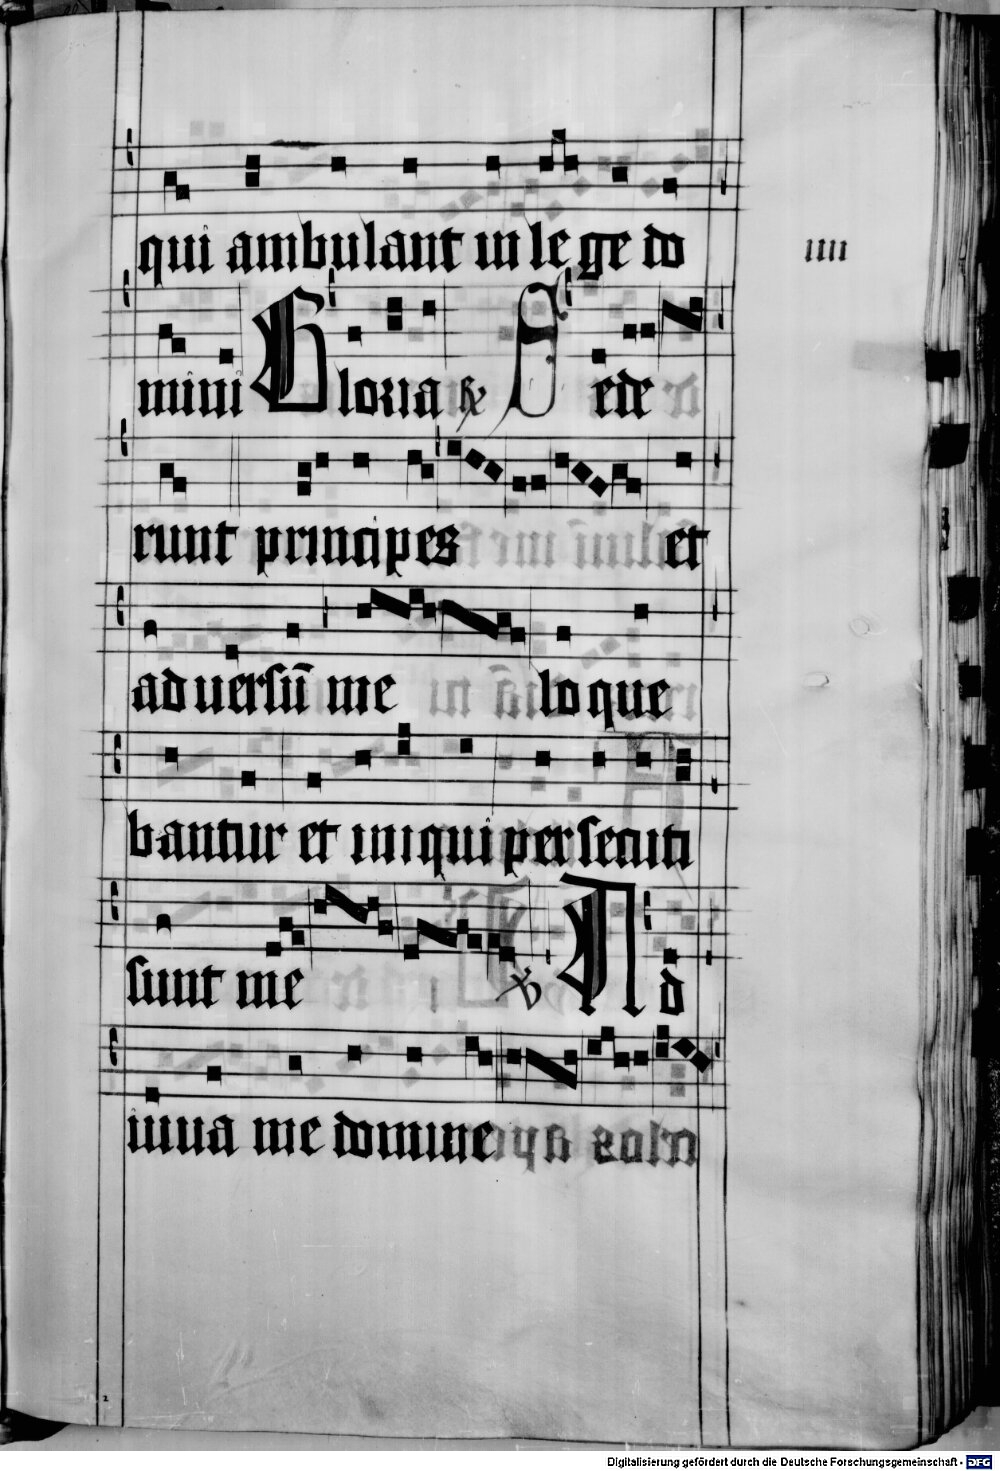 qui ambulant in lege do
iiii
mini Gloria ℟ Sede
runt principes et
adversū me loque
bantur et iniqui persecuti
sunt me ℣ Ad
iuua me domine
Digitalisierung gefördert durch die Deutsche Forschungsgemeinschaft - DFG